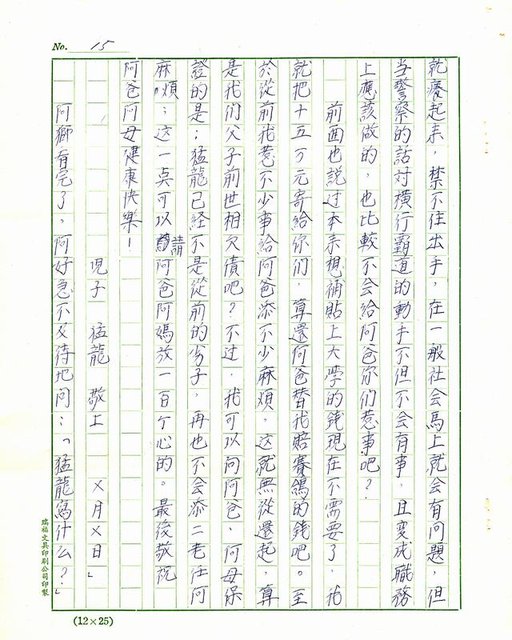 No. 15
就癢起來，禁不住出手，在一般社会馬上就会有問題，但
当警察的話対横行霸道的動手不但不会有事，且変成職務
上應該做的，也比較不会給阿爸你们惹事吧？
前面也說过本来想補貼上大学的錢現在不需要了，我
就把十五万元寄給你们，算還阿爸替我賠賽鴿的錢吧。至
於從前我惹不少事給阿爸添不少麻煩，这就無從還起，算
是我们父子前世相欠債吧？不过，我可以向阿爸、阿母保
證的是：猛龍已経不是從前的劣子，再也不会添二老任何
麻煩；这一点可以請阿爸阿媽放一百个心的。最後敬祝
阿爸阿母健康快樂！
児子 猛龍 敬上 ×月×日」
阿獅看完了，阿好急不及待地问：「猛龍為什么？」
瑞福文具印刷公司印製
(12×25)